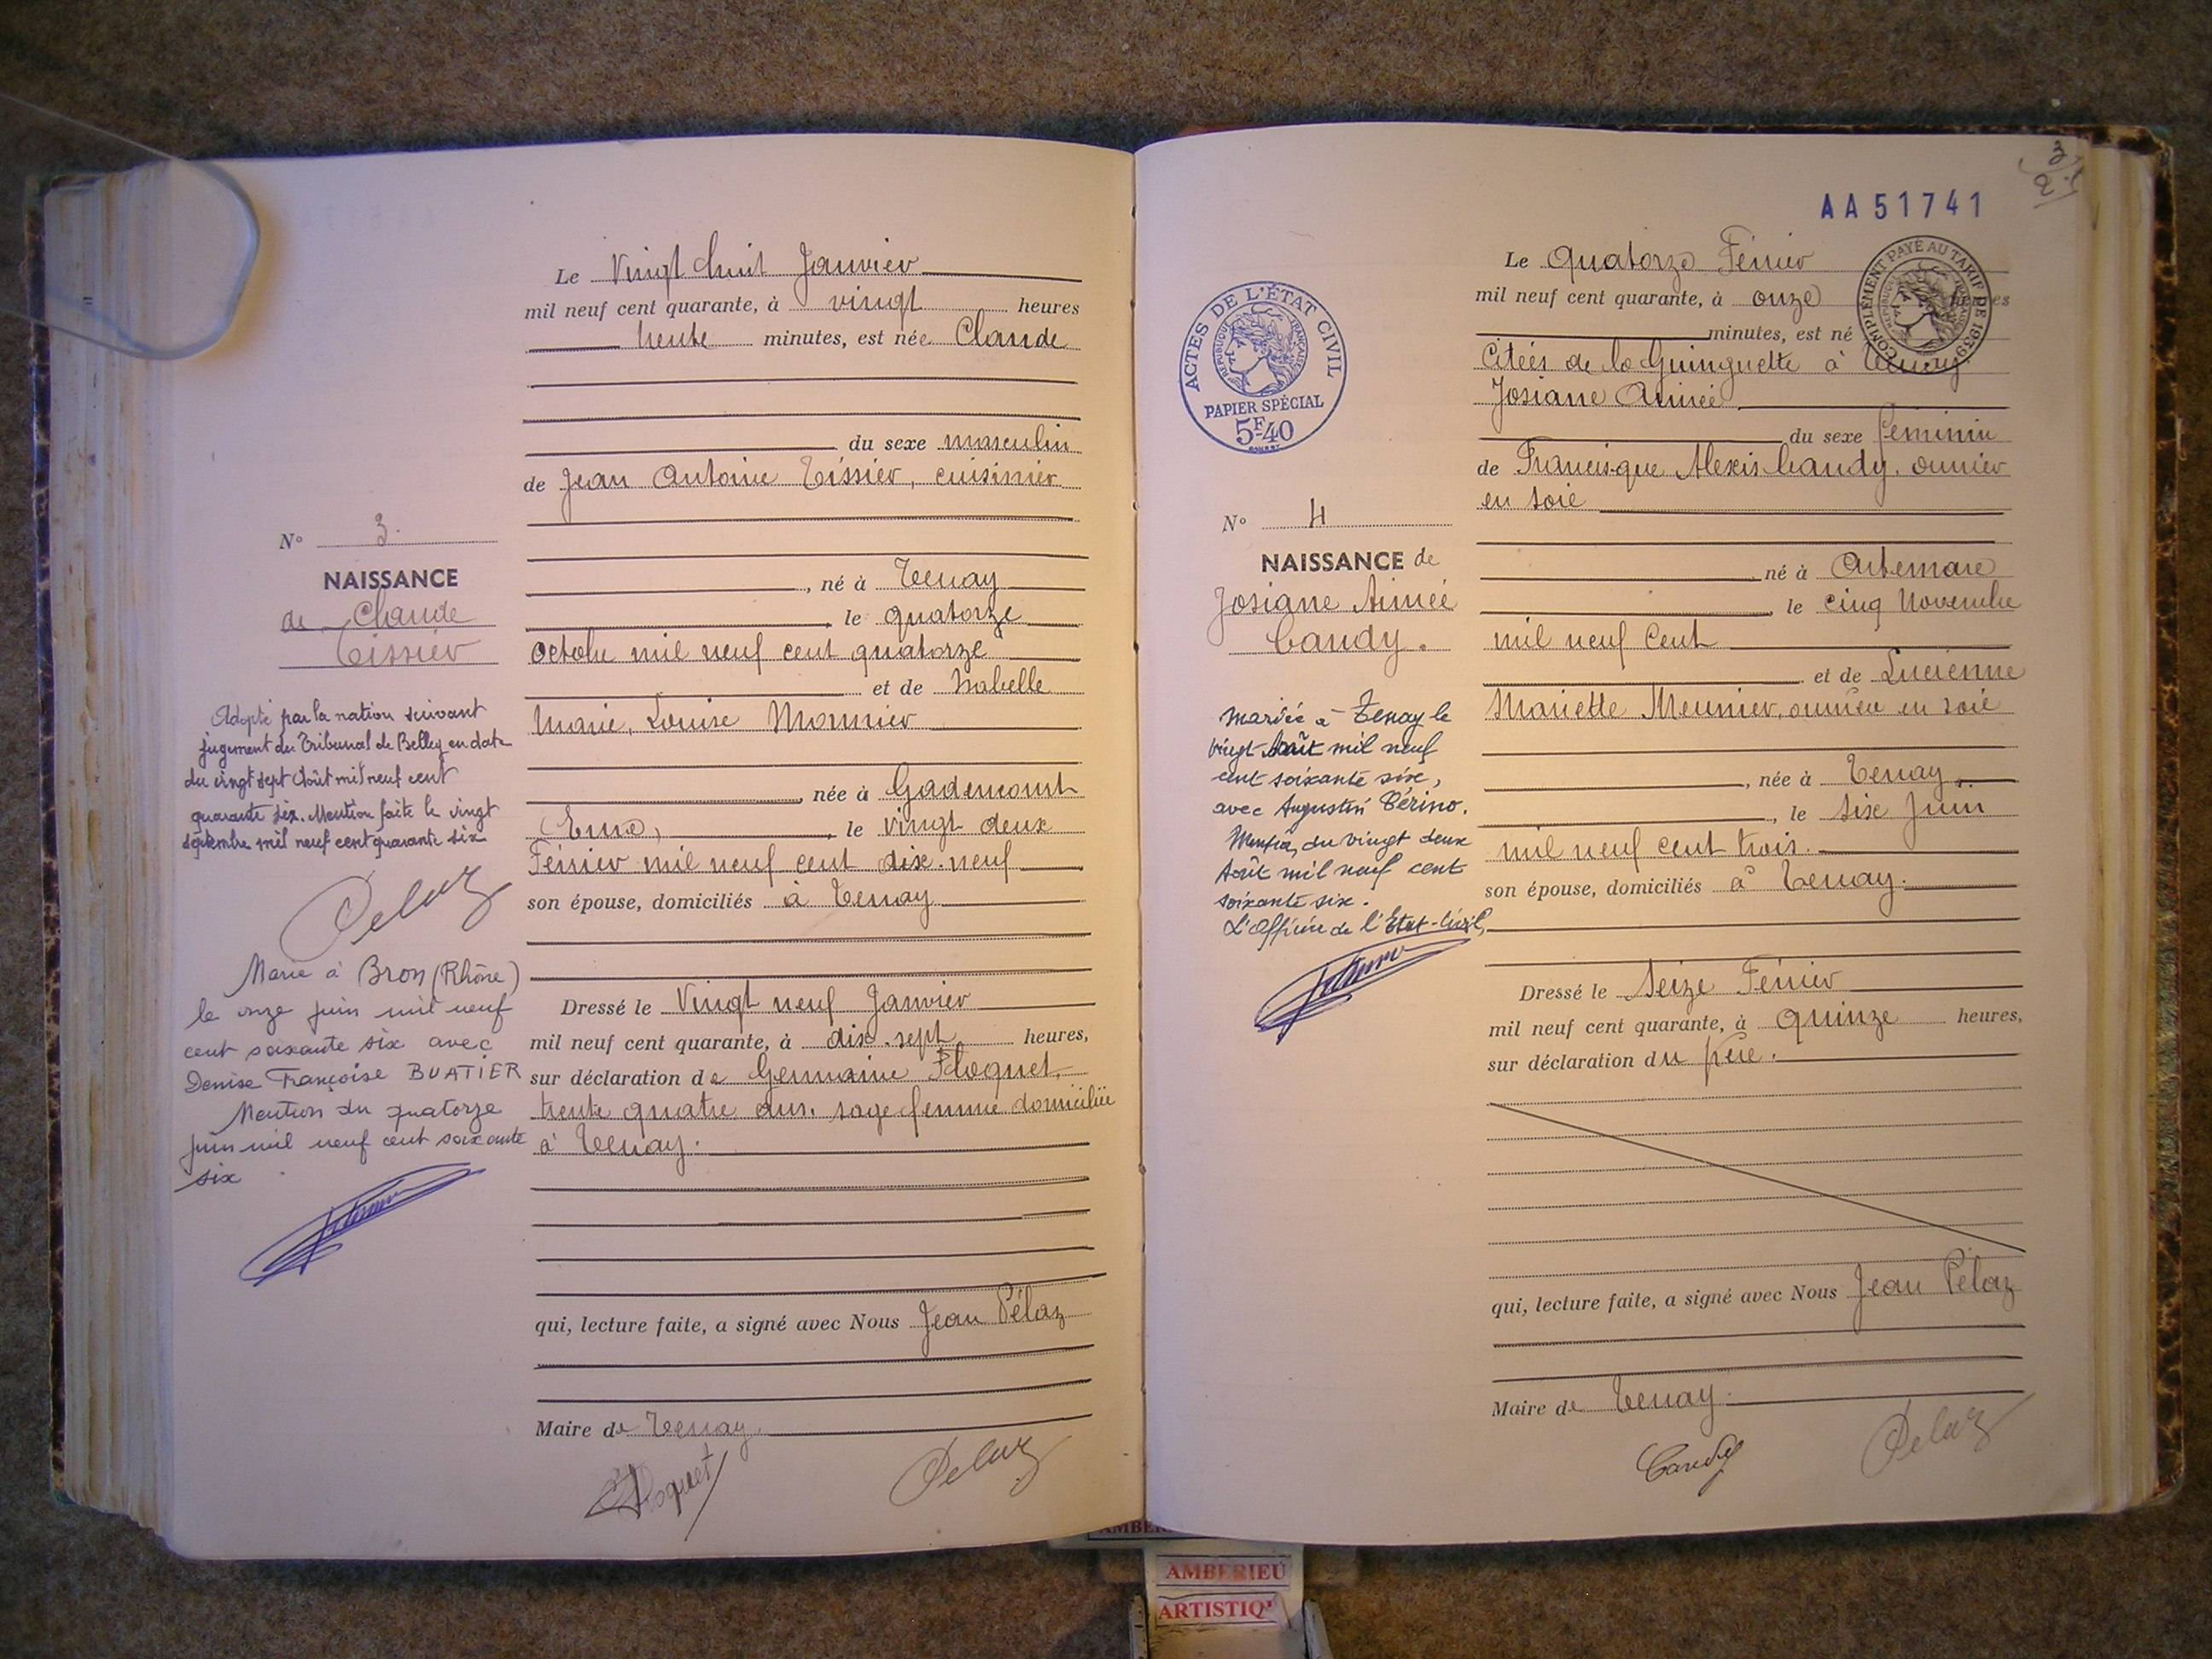 Le Vingt huit Janvier
mil neuf cent quarante, à vingt heures
trente minutes, est née Claude
du sexe masculin
de Jean Antoine Tissier, cuisinier
N° 3.
NAISSANCE
de Claude
Tissier
né à Tenay
le quatorze
Octobre mil neuf cent quatorze
et de Isabelle
Marie, Louise Monnier
née à Gadencourt
(Eure), le vingt deux
Février mil neuf cent dix-neuf
son épouse, domiciliés à Tenay
Adopté par la nation suivant
jugement du Tribunal de Belley en date
du vingt sept Août mil neuf cent
quarante six. Mention faite le vingt
septembre mil neuf cent quarante six
Pelaz
Marié à Bron (Rhône)
le onze juin mil neuf
cent soixante six avec
Denise Françoise BUATIER
Mention du quatorze
juin mil neuf cent soixante
six
Dressé le Vingt neuf Janvier
mil neuf cent quarante, à dix-sept heures,
sur déclaration de Germaine Floquet,
trente quatre ans, sage femme domiciliée
à Tenay.
qui, lecture faite, a signé avec Nous Jean Pélaz
Maire de Tenay.
Floquet
Pelaz
AA51741
ACTES DE L'ÉTAT CIVIL
RÉPUBLIQUE FRANÇAISE
PAPIER SPÉCIAL
5F40
COMPLÉMENT PAYÉ AU TARIF DE 1939
Le Quatorze Février
mil neuf cent quarante, à onze heures
minutes, est né
Citées de la Guinguette à Tenay
Josiane Aimée
du sexe féminin
de Francisque Alexis Candy, ouvrier
en soie
N° 4
NAISSANCE de
Josiane Aimée
Candy.
né à Artemare
le cinq Novembre
mil neuf cent
et de Lucienne
Mariette Meunier, ouvrière en soie
née à Tenay
, le six Juin
mil neuf cent trois.
son épouse, domiciliés à Tenay.
Mariée à Tenay le
vingt Août mil neuf
cent soixante six,
avec Augustin Périno.
Mention du vingt deux
Août mil neuf cent
soixante six.
L'Officier de l'Etat-Civil,
Dressé le Seize Février
mil neuf cent quarante, à quinze heures,
sur déclaration du père.
qui, lecture faite, a signé avec Nous Jean Pelaz
Maire de Tenay.
Candy
Pelaz
AMBERIEU
ARTISTIQ'